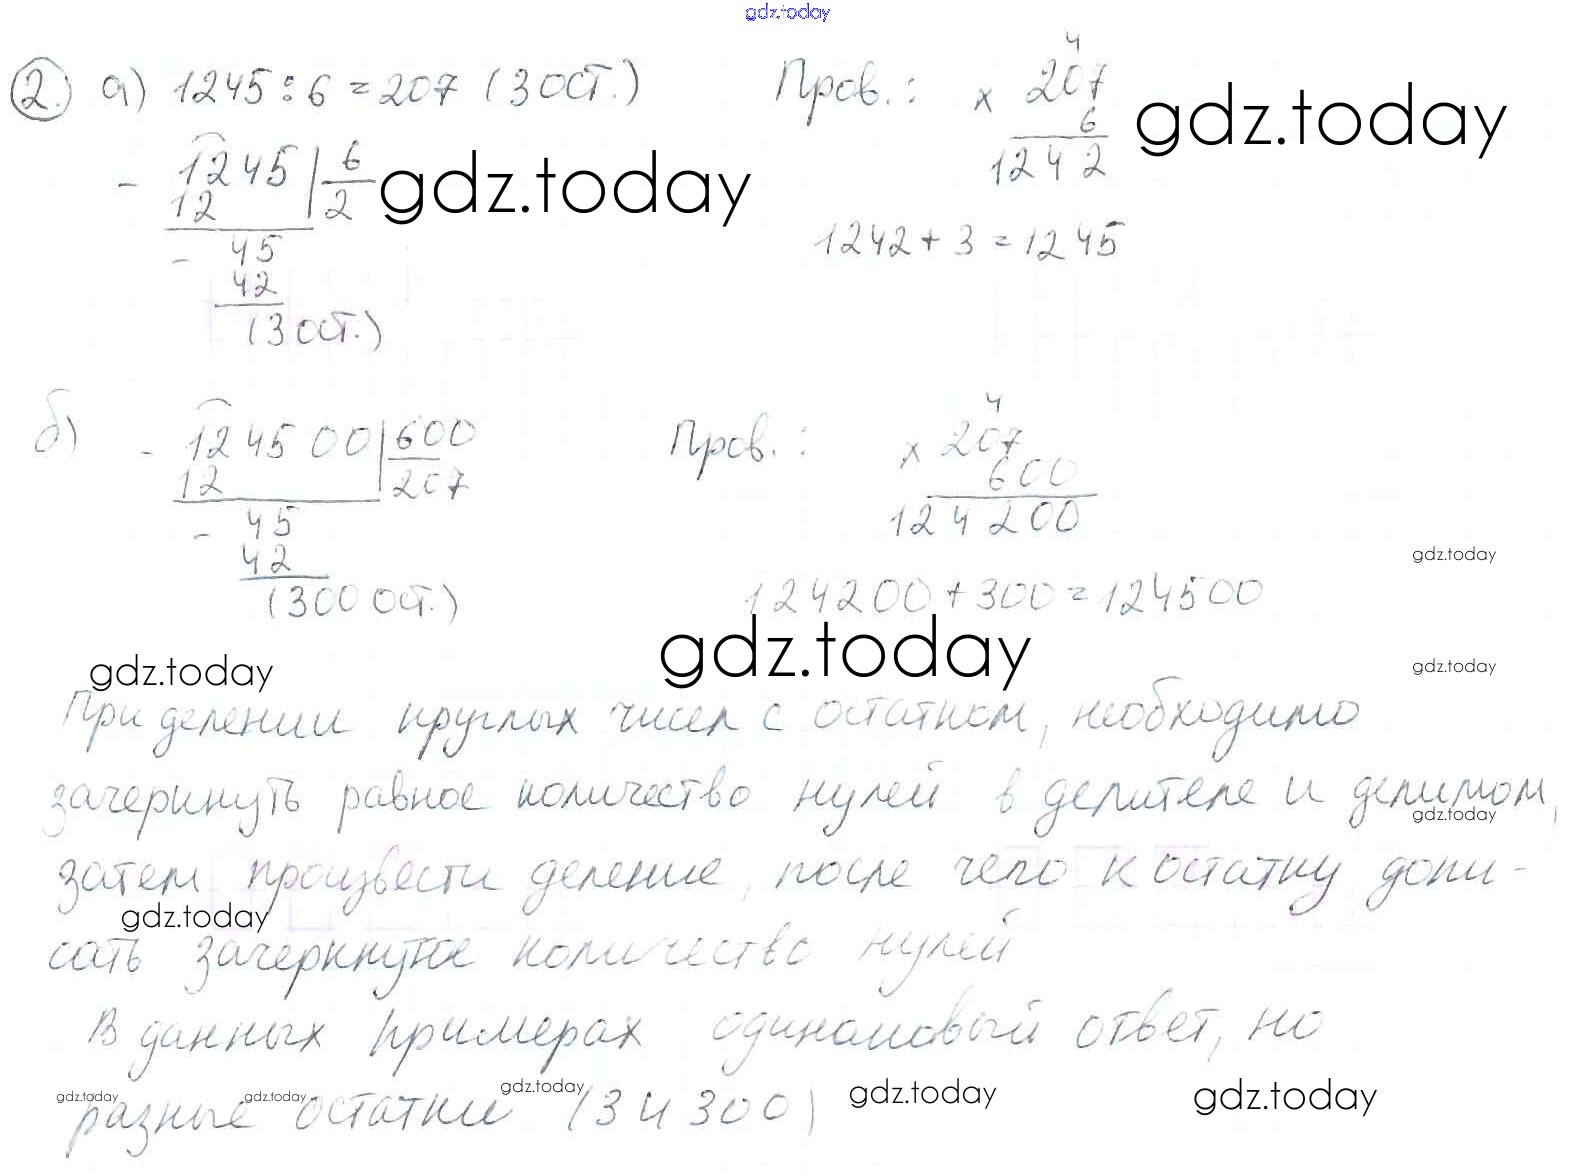 gdz.today
② а) 1245 : 6 = 207 (3 ост.) Пров.: × 207
4
6
1242
gdz.today
- 1245 | 6
12 | 2
gdz.today
- 45
42
(3 ост.)
1242 + 3 = 1245
б) - 124500 | 600
12 | 207
- 45
42
(300 ост.)
Пров.: × 207
4
600
124200
gdz.today
124200 + 300 = 124500
gdz.today
gdz.today
gdz.today
При делении круглых чисел с остатком, необходимо
зачеркнуть равное количество нулей в делителе и делимом,
gdz.today
затем произвести деление, после чего к остатку допи-
gdz.today
сать зачеркнутое количество нулей
В данных примерах одинаковый ответ, но
gdz.today gdz.today gdz.today gdz.today gdz.today
разные остатки (3 и 300)